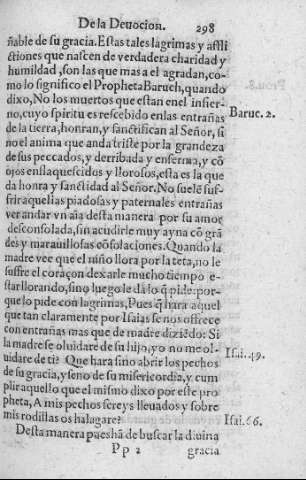 De la Deuocion. 298
ñable de su gracia. Estas tales lagrimas y afli
ctiones que nascen de verdadera charidad y
humildad, son las que mas a el agradan, co-
mo lo significo el Propheta Baruch, quando
dixo, No los muertos que estan en el infier-
no, cuyo spiritu es rescebido en las entrañas Baruc. 2.
de la tierra, honran, y sanctifican al Señor, si
no el anima que anda triste por la grandeza
de sus peccados, y derribada y enferma, y cõ
ojos enflaquescidos y llorosos, esta es la que
da honra y sanctidad al Señor. No suelē suf-
frir aquellas piadosas y paternales entrañas
ver andar vn aĩa desta manera por su amor
desconsolada, sin acudirle muy ayna cõ grã
des y marauillosas cõsolaciones. Quando la
madre vee que el niño llora por la teta, no le
suffre el coraçon dexarle mucho tiempo e-
star llorando, sino luego le da lo q̃ pide: por-
que lo pide con lagrimas, Pues q̃ hara aquel
que tan claramente por Isaias se nos offrece
con entrañas mas que de madre diziẽdo: Si
la madre se oluidare de su hijo, yo no me ol-
uidare de ti? Que hara sino abrir los pechos Isai. 49.
de su gracia, y seno de su misericordia, y cum
plir aquello que el mismo dixo por este pro
pheta, A mis pechos sereys lleuados y sobre
mis rodillas os halagare? Isai. 66.
Desta manera pues hã de buscar la diuina
Pp 2 gracia